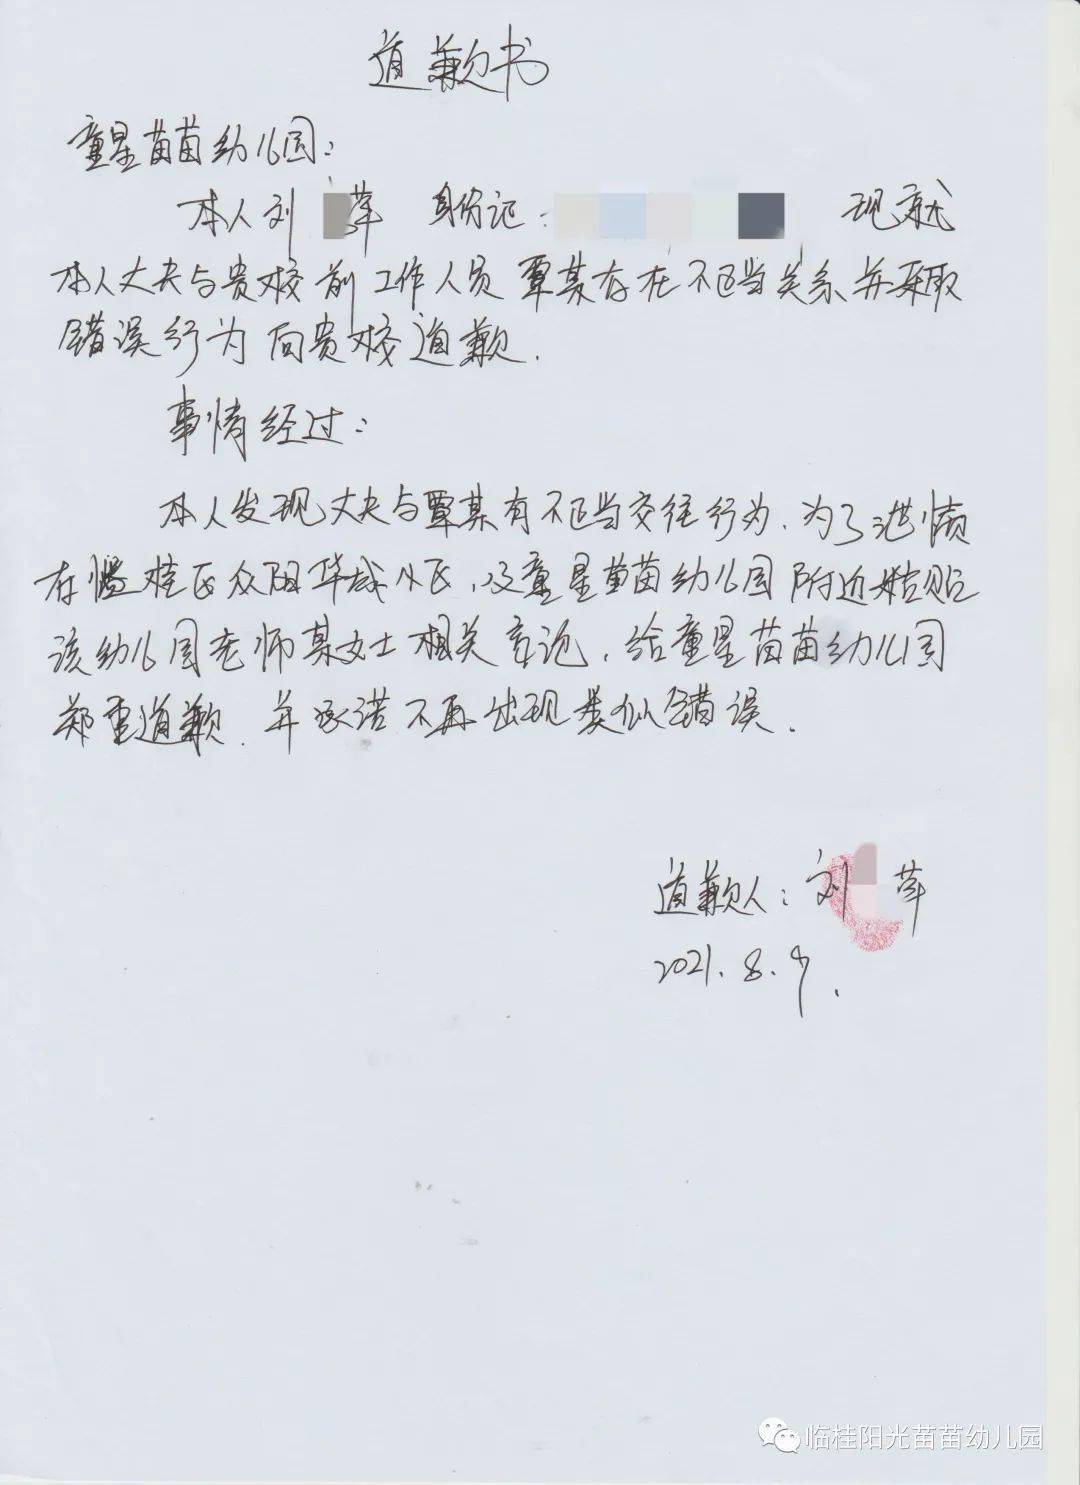 道歉书
童星苗苗幼儿园：
本人刘 萍 身份记： 现就
本人丈夫与贵校前工作人员覃某存在不正当关系并采取
错误行为向贵校道歉.
事情经过：
本人发现丈夫与覃某有不正当交往行为.为了泄愤
在 桂区众阳华城小区,及童星苗苗幼儿园附近粘贴
该幼儿园老师某女士相关言论.给童星苗苗幼儿园
郑重道歉.并承诺不再出现类似错误.
道歉人：刘 萍
2021.8.9.
临桂阳光苗苗幼儿园